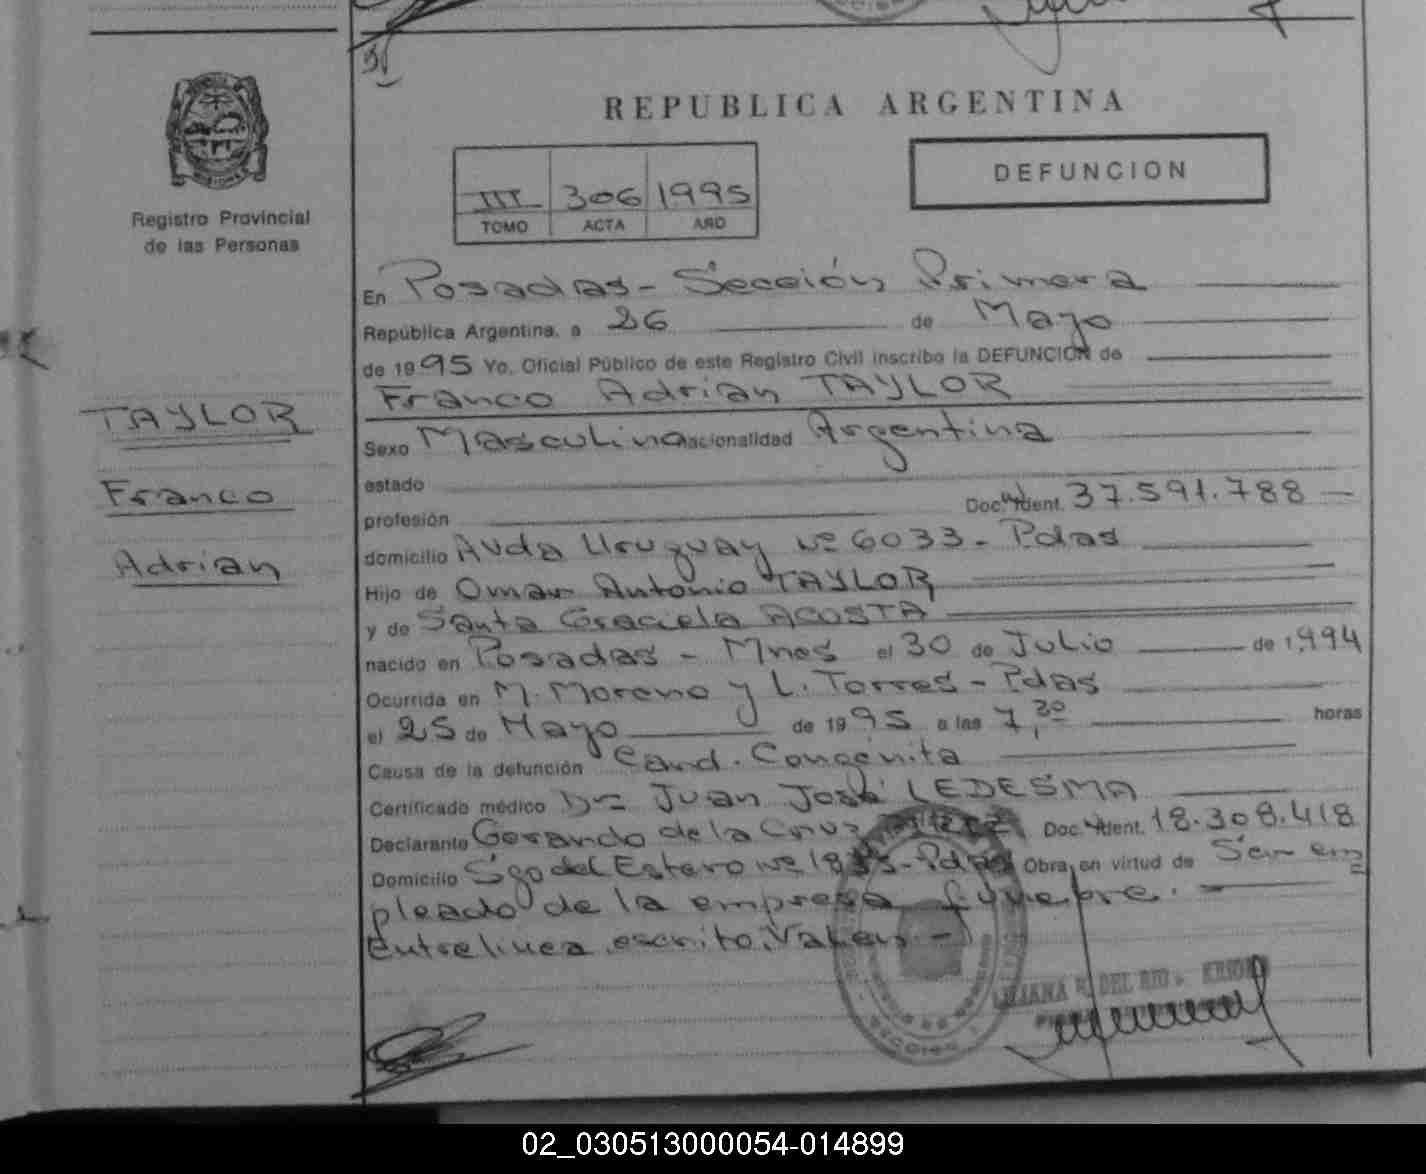 REPUBLICA ARGENTINA
DEFUNCION
III 306 1995
TOMO ACTA AÑO
Registro Provincial
de las Personas
TAYLOR
Franco
Adrian
En Posadas - Sección Primera
República Argentina, a 26 de Mayo
de 1995 Yo, Oficial Público de este Registro Civil inscribo la DEFUNCION de
Franco Adrian TAYLOR
Sexo Masculino nacionalidad Argentina
estado
profesión Doc. Ident. 37.591.788
domicilio Avda Uruguay Nº 6033 - Pdas
Hijo de Omar Antonio TAYLOR
y de Santa Graciela ACOSTA
nacido en Posadas - Mnes el 30 de Julio de 1,994
Ocurrida en M. Moreno y L. Torres - Pdas
el 25 de Mayo de 1995 a las 7,30 horas
Causa de la defunción Card. Congénita
Certificado médico Dr = Juan José LEDESMA
Declarante de la Cruz Doc. Ident. 18.308.418
Domicilio Sgo del Estero Nº - Pdas Obra, en virtud de Ser em=
pleado de la empresa fúnebre. -
Entrelinea, escrito, Valen. -
LILIANA R. DEL RIO
02_030513000054-014899